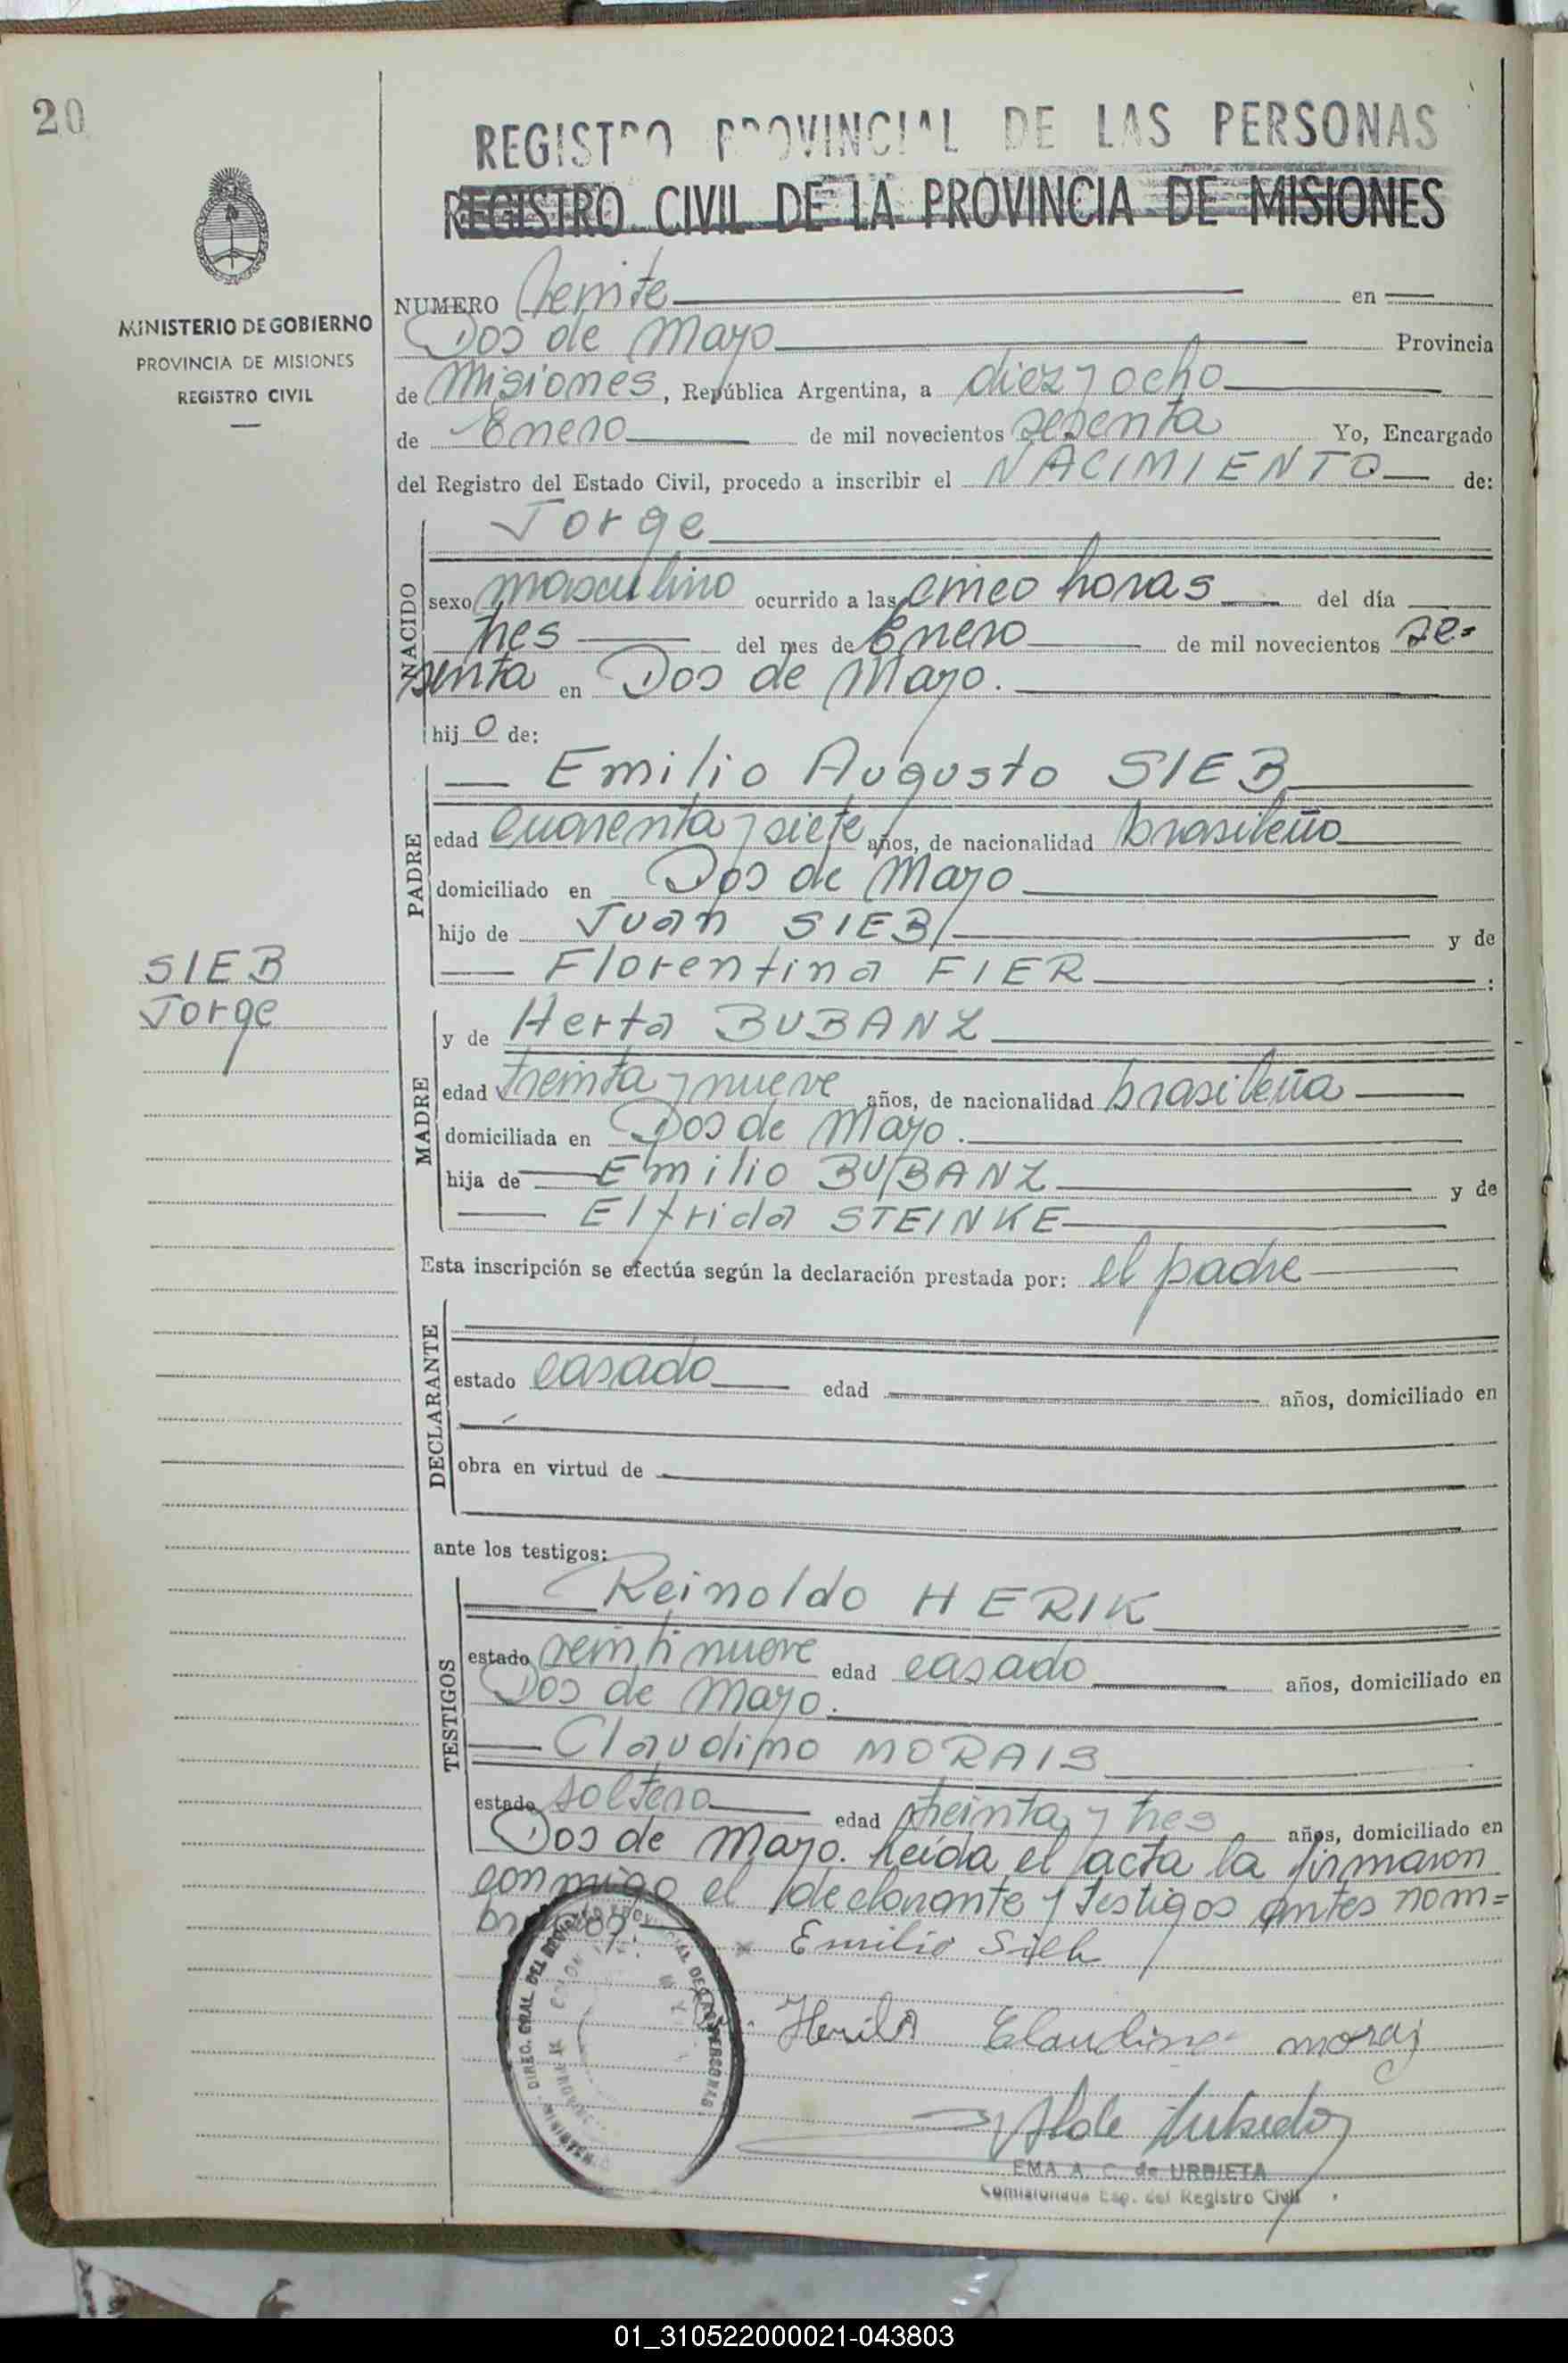 20
REGISTRO PROVINCIAL DE LAS PERSONAS
REGISTRO CIVIL DE LA PROVINCIA DE MISIONES
MINISTERIO DE GOBIERNO
PROVINCIA DE MISIONES
REGISTRO CIVIL
NUMERO Veinte en
Dos de Mayo Provincia
de Misiones, República Argentina, a diez y ocho
de Enero de mil novecientos sesenta Yo, Encargado
del Registro del Estado Civil, procedo a inscribir el NACIMIENTO de:
Jorge
NACIDO
sexo masculino ocurrido a las cinco horas del día
tres del mes de Enero de mil novecientos se=
senta en Dos de Mayo.
hijo de:
Emilio Augusto SIEB
PADRE
edad cuarenta y siete años, de nacionalidad brasileño
domiciliado en Dos de Mayo
hijo de Juan SIEB y de
Florentina FIER :
SIEB
Jorge
MADRE
y de Herta BUBANZ
edad treinta y nueve años, de nacionalidad brasileña
domiciliada en Dos de Mayo.
hija de Emilio BUBANZ y de
Elfrida STEINKE
Esta inscripción se efectúa según la declaración prestada por: el padre
DECLARANTE
estado casado edad años, domiciliado en
obra en virtud de
ante los testigos:
TESTIGOS
Reinoldo HERIK
estado veintinueve edad casado años, domiciliado en
Dos de Mayo.
Claudino MORAIS
estado soltero edad treinta y tres años, domiciliado en
Dos de Mayo. Leída el acta la firmaron
conmigo el declarante y testigos antes nom=
brados.
Emilio Sieb
Claudino morais
DIREC. GRAL. DEL REGISTRO PROVINCIAL DE LAS PERSONAS
EMA A. C. de URBIETA
Comisionada Esp. del Registro Civil
01_310522000021-043803